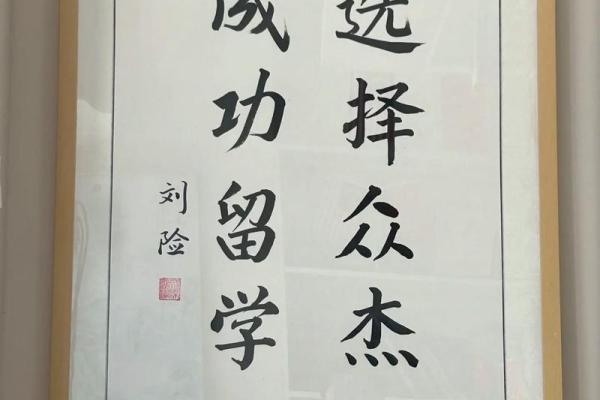 选择众杰
成功留学
刘险